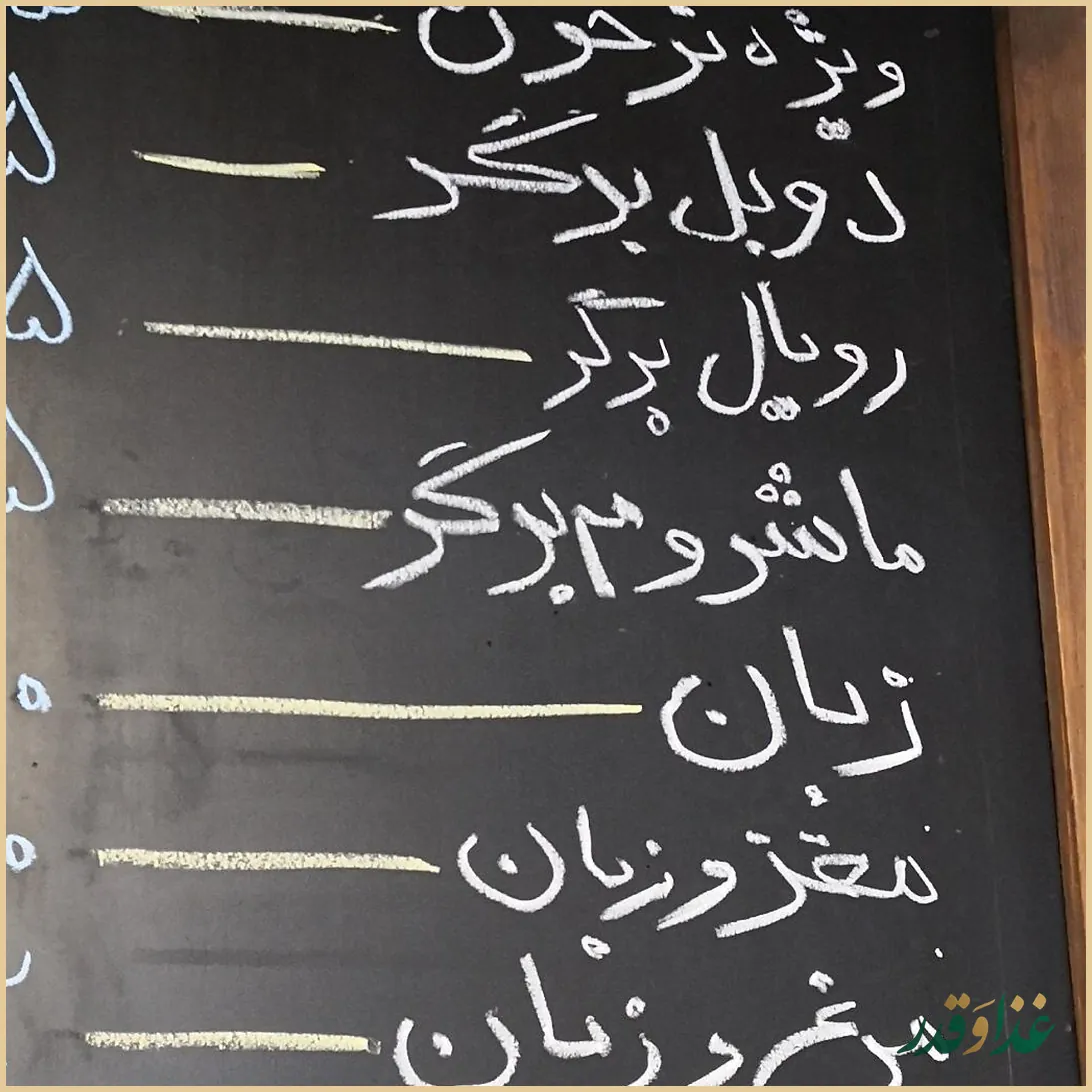 ویژه ترخون
دوبل برگر ۵
رویال برگر ۵
ماشروم برگر
زبان ۵
مغز و زبان ۵
مرغ و زبان
غذا و قدر